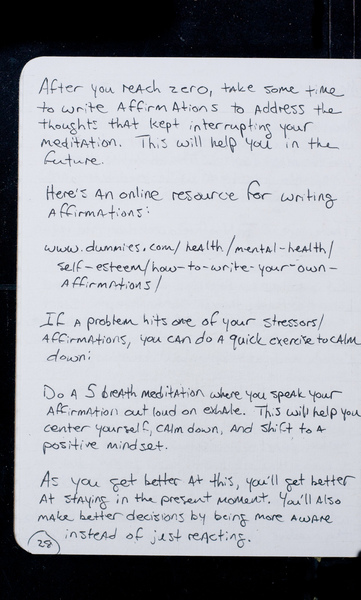 After you reach zero, take some time
to write affirmations to address the
thoughts that kept interrupting your
meditation. This will help you in the
future.
Here's an online resource for writing
affirmations:
www.dummies.com/health/mental-health/
self-esteem/how-to-write-your-own-
affirmations/
If a problem hits one of your stressors/
affirmations, you can do a quick exercise to calm
down:
Do a 5 breath meditation where you speak your
affirmation out loud on exhale. This will help you
center yourself, calm down, and shift to a
positive mindset.
As you get better at this, you'll get better
at staying in the present moment. You'll also
make better decisions by being more aware
instead of just reacting.
28